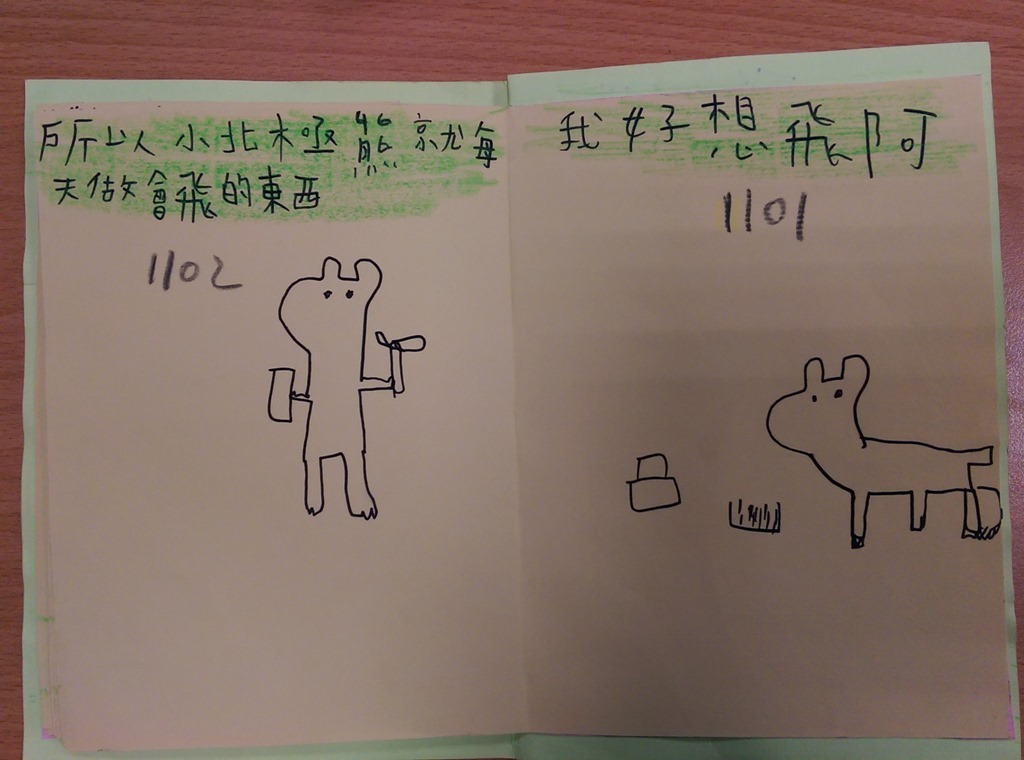 我好想飛阿
1101
所以小北極熊就每
天做會飛的東西
1102